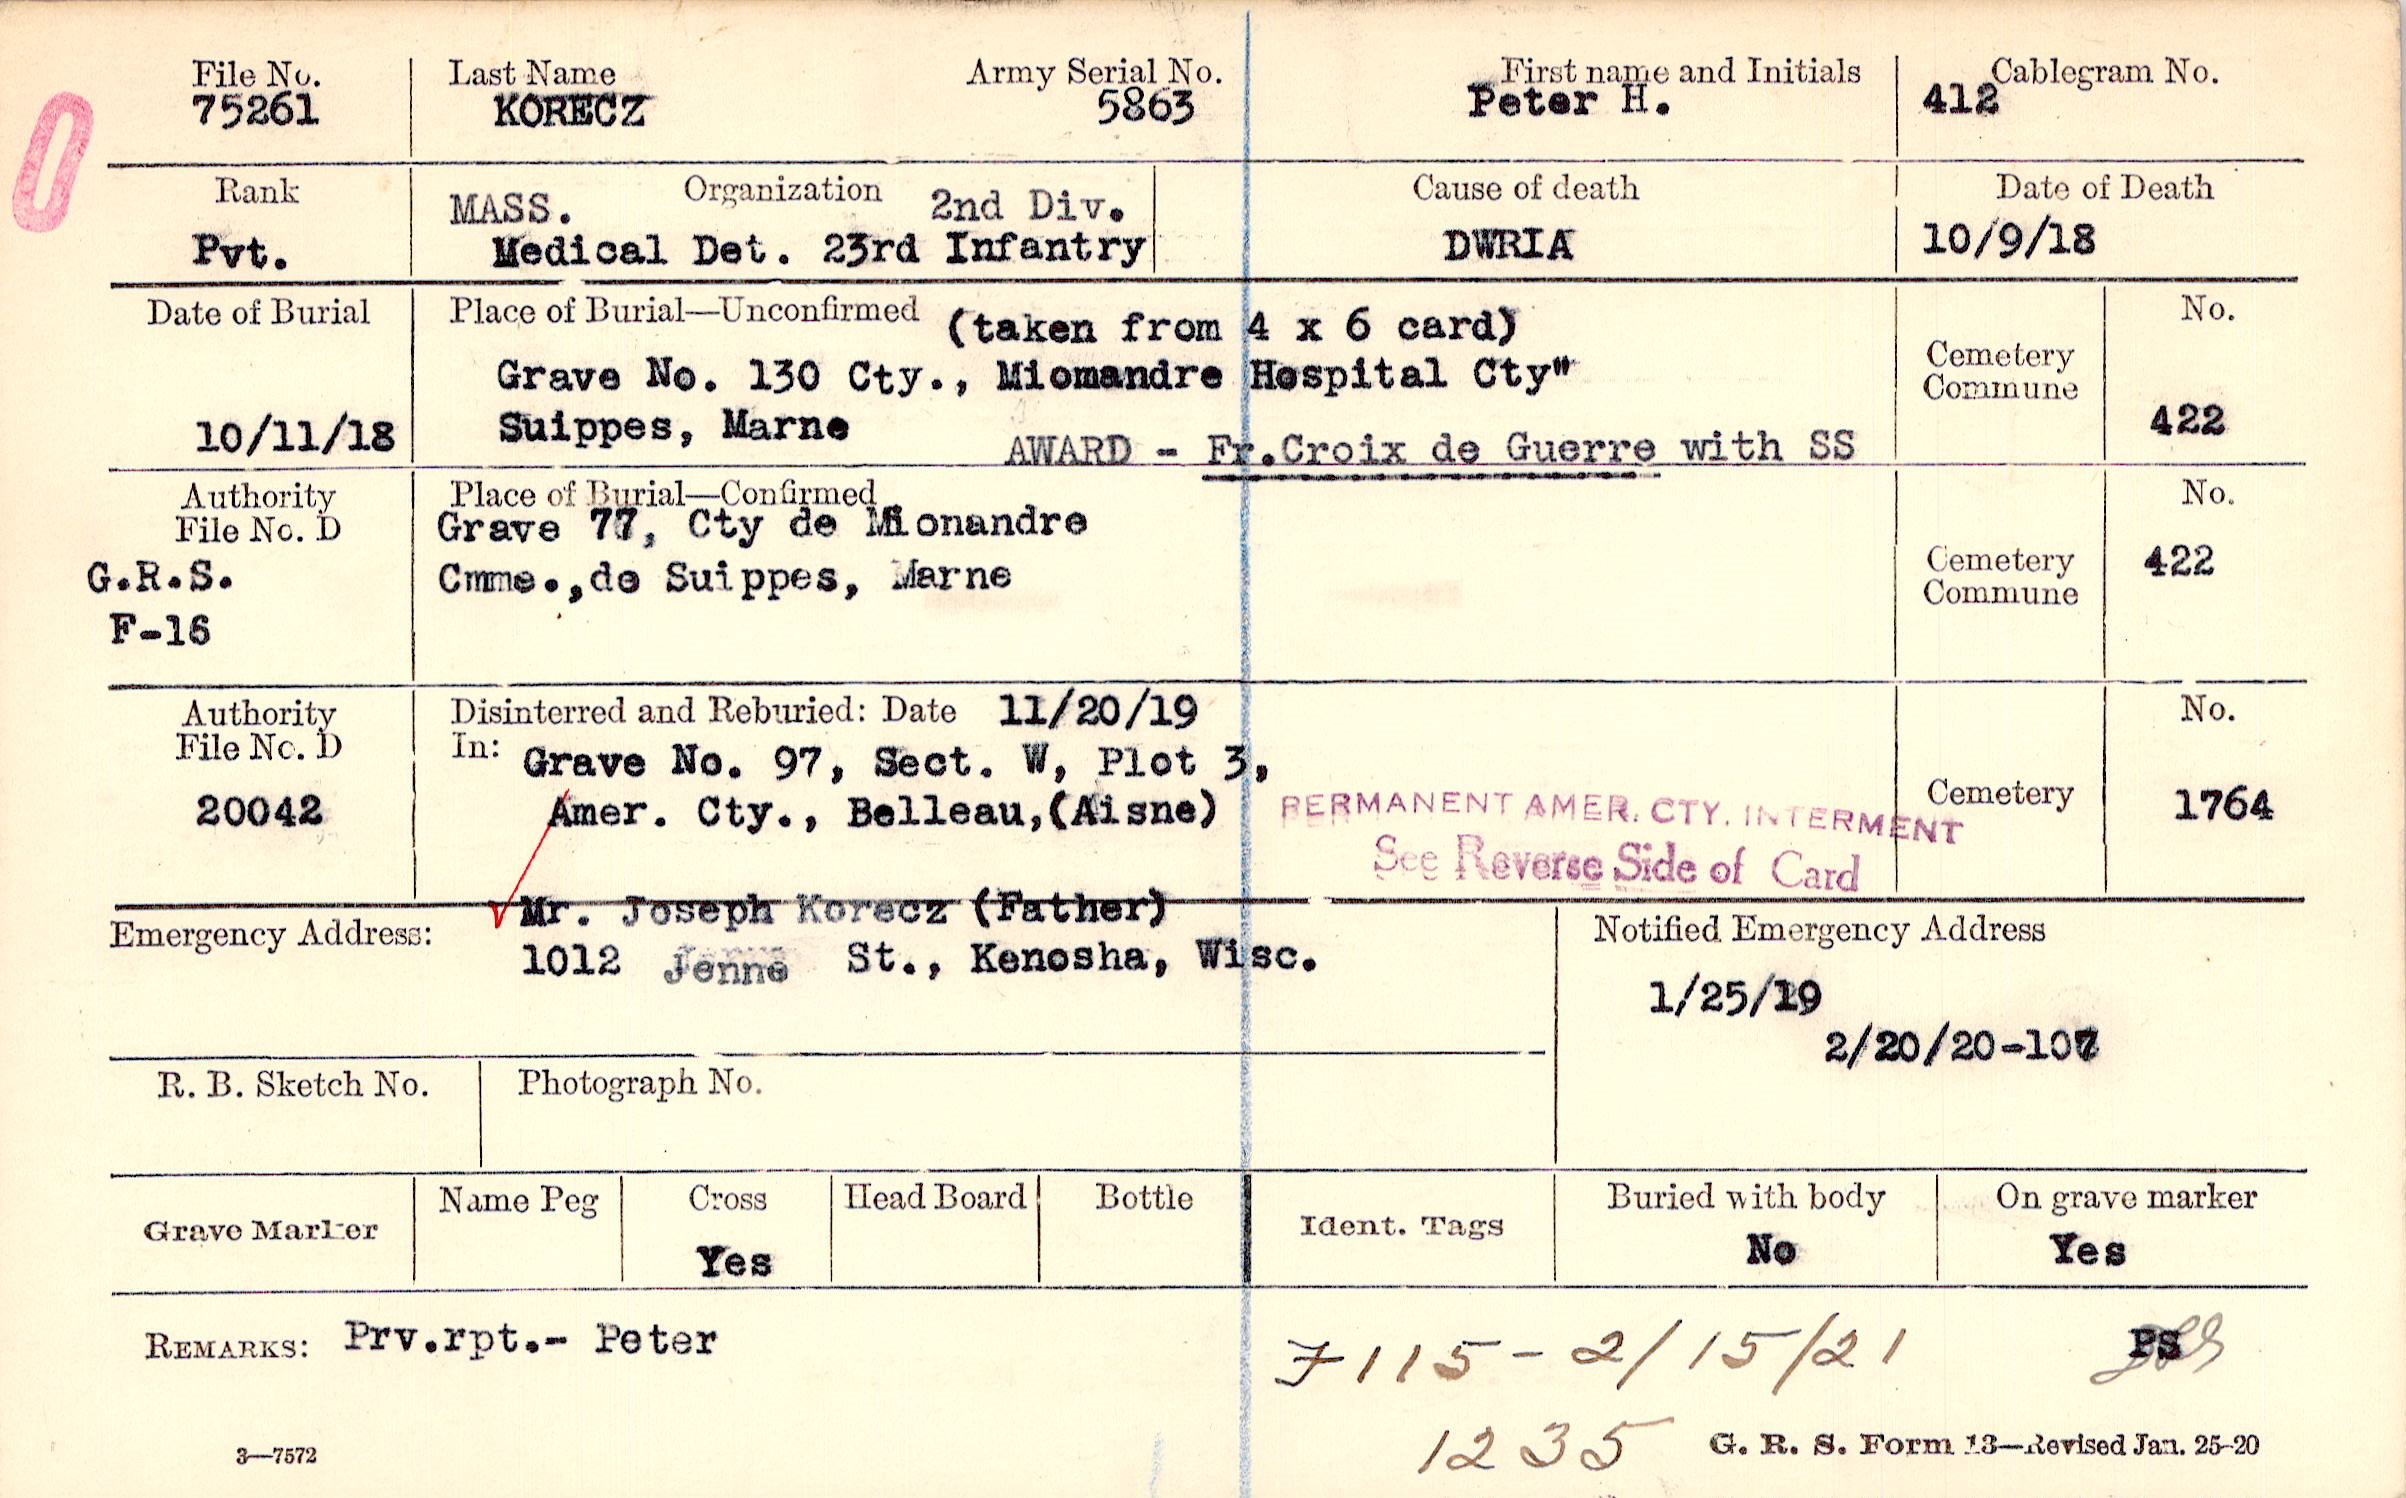 File No. Last Name Army Serial No. First name and Initials Cablegram No.
75261 KORECZ 5863 Peter H. 412
Rank Organization Cause of death Date of Death
MASS. 2nd Div.
Pvt. Medical Det. 23rd Infantry DWRIA 10/9/18
Date of Burial Place of Burial—Unconfirmed (taken from 4 x 6 card) No.
Grave No. 130 Cty., Miomandre Hospital Cty" Cemetery
Commune
10/11/18 Suippes, Marne 422
AWARD - Fr.Croix de Guerre with SS
Authority Place of Burial—Confirmed No.
File No. D Grave 77, Cty de Mionandre
G.R.S. Cmme.,de Suippes, Marne Cemetery 422
Commune
F-16
Authority Disinterred and Reburied: Date 11/20/19 No.
File No. D In: Grave No. 97, Sect. W, Plot 3,
20042 Amer. Cty., Belleau,(Aisne) Cemetery 1764
PERMANENT AMER. CTY. INTERMENT
See Reverse Side of Card
Mr. Joseph Korecz (Father)
Emergency Address: Notified Emergency Address
1012 Jenne St., Kenosha, Wisc.
1/25/19
2/20/20-107
R. B. Sketch No. Photograph No.
Grave Marker Name Peg Cross Head Board Bottle Ident. Tags Buried with body On grave marker
Yes No Yes
REMARKS: Prv.rpt.- Peter 7115-2/15/21 PS
1235
3—7572 G. R. S. Form 13—Revised Jan. 25-20